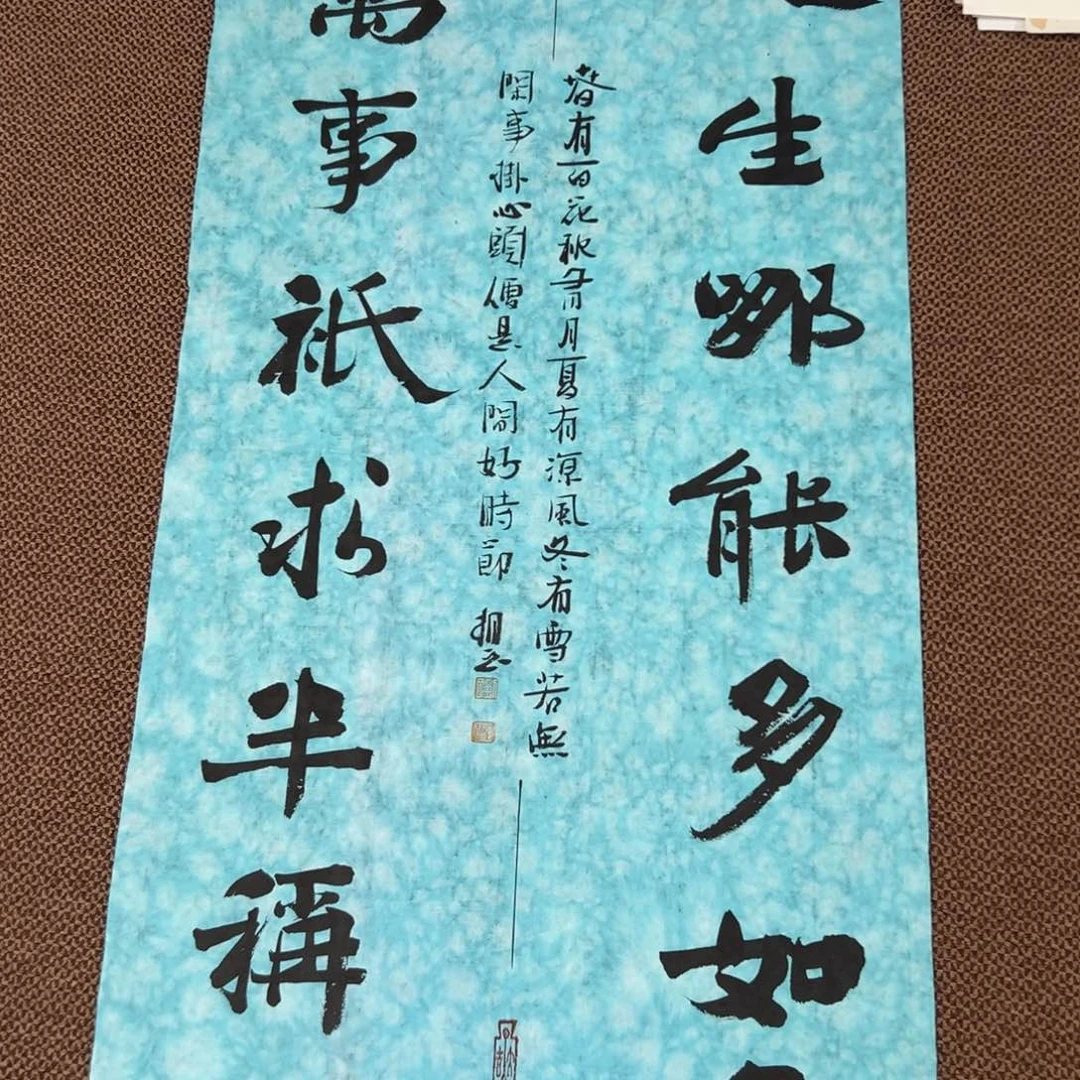 生哪能多如
春有百花秋有月夏有凉風冬有雪若無
閑事掛心頭便是人間好時節
萬事祇求半稱